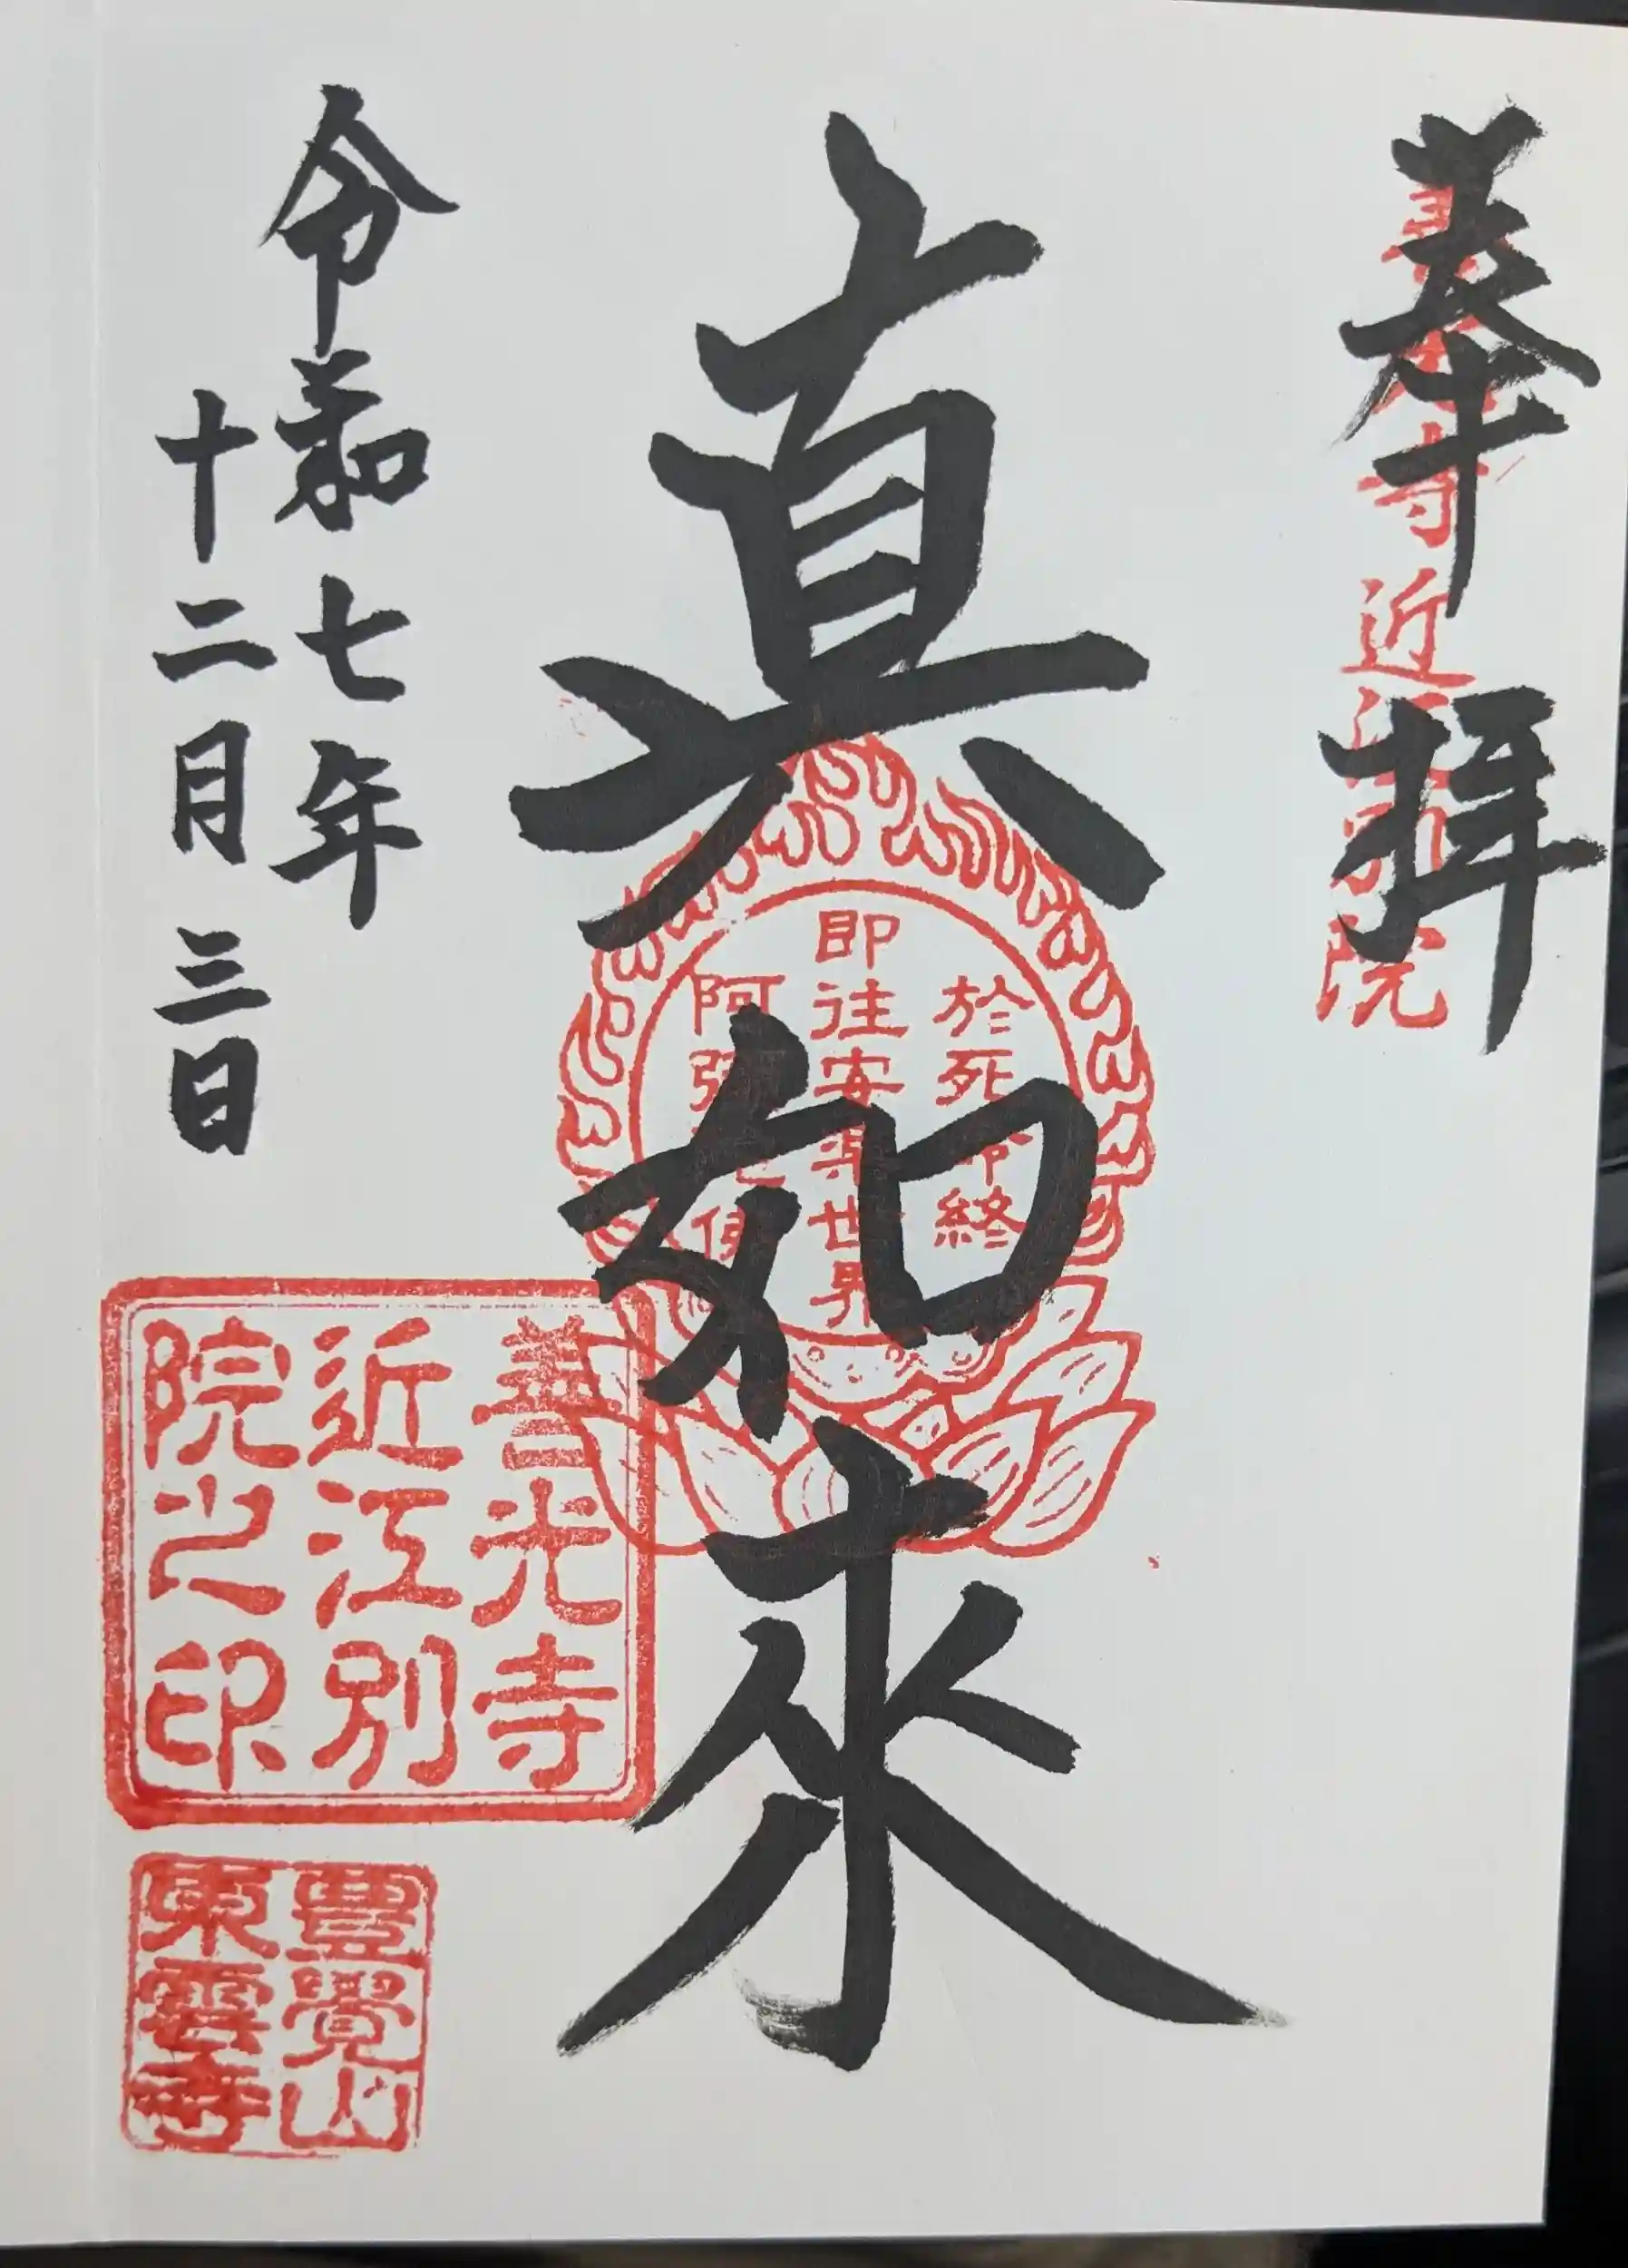 奉拝
善光寺 近江別院
真如来
於死命終
即往安楽世界
阿弥陀佛
令和七年
十二月三日
善光寺
近江別
院之印
豊覺山
東雲寺